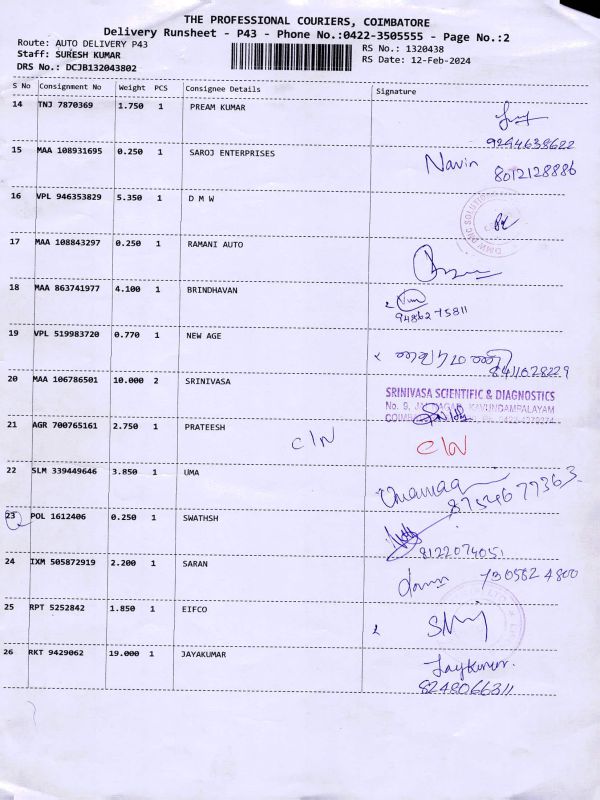 THE PROFESSIONAL COURIERS, COIMBATORE
Delivery Runsheet - P43 - Phone No.:0422-3505555 - Page No.:2
Route: AUTO DELIVERY P43
Staff: SURESH KUMAR
DRS No.: DCJB132043802
RS No.: 1320438
RS Date: 12-Feb-2024
S No Consignment No Weight PCS Consignee Details Signature
14 TNJ 7870369 1.750 1 PREAM KUMAR
9244638622
15 MAA 108931695 0.250 1 SAROJ ENTERPRISES Navin 8012128886
16 VPL 946353829 5.350 1 D M W
17 MAA 108843297 0.250 1 RAMANI AUTO
18 MAA 863741977 4.100 1 BRINDHAVAN
9486275811
19 VPL 519983720 0.770 1 NEW AGE
8411628229
20 MAA 106786501 10.000 2 SRINIVASA
SRINIVASA SCIENTIFIC & DIAGNOSTICS
No. 9, KAVUNDAMPALAYAM
21 AGR 700765161 2.750 1 PRATEESH C/N C/N
22 SLM 339449646 3.850 1 UMA
8754677363
23 POL 1612406 0.250 1 SWATHSH
8122074051
24 IXM 505872919 2.200 1 SARAN 730582 4800
25 RPT 5252842 1.850 1 EIFCO
26 RKT 9429062 19.000 1 JAYAKUMAR Jaykumar.
8248066311